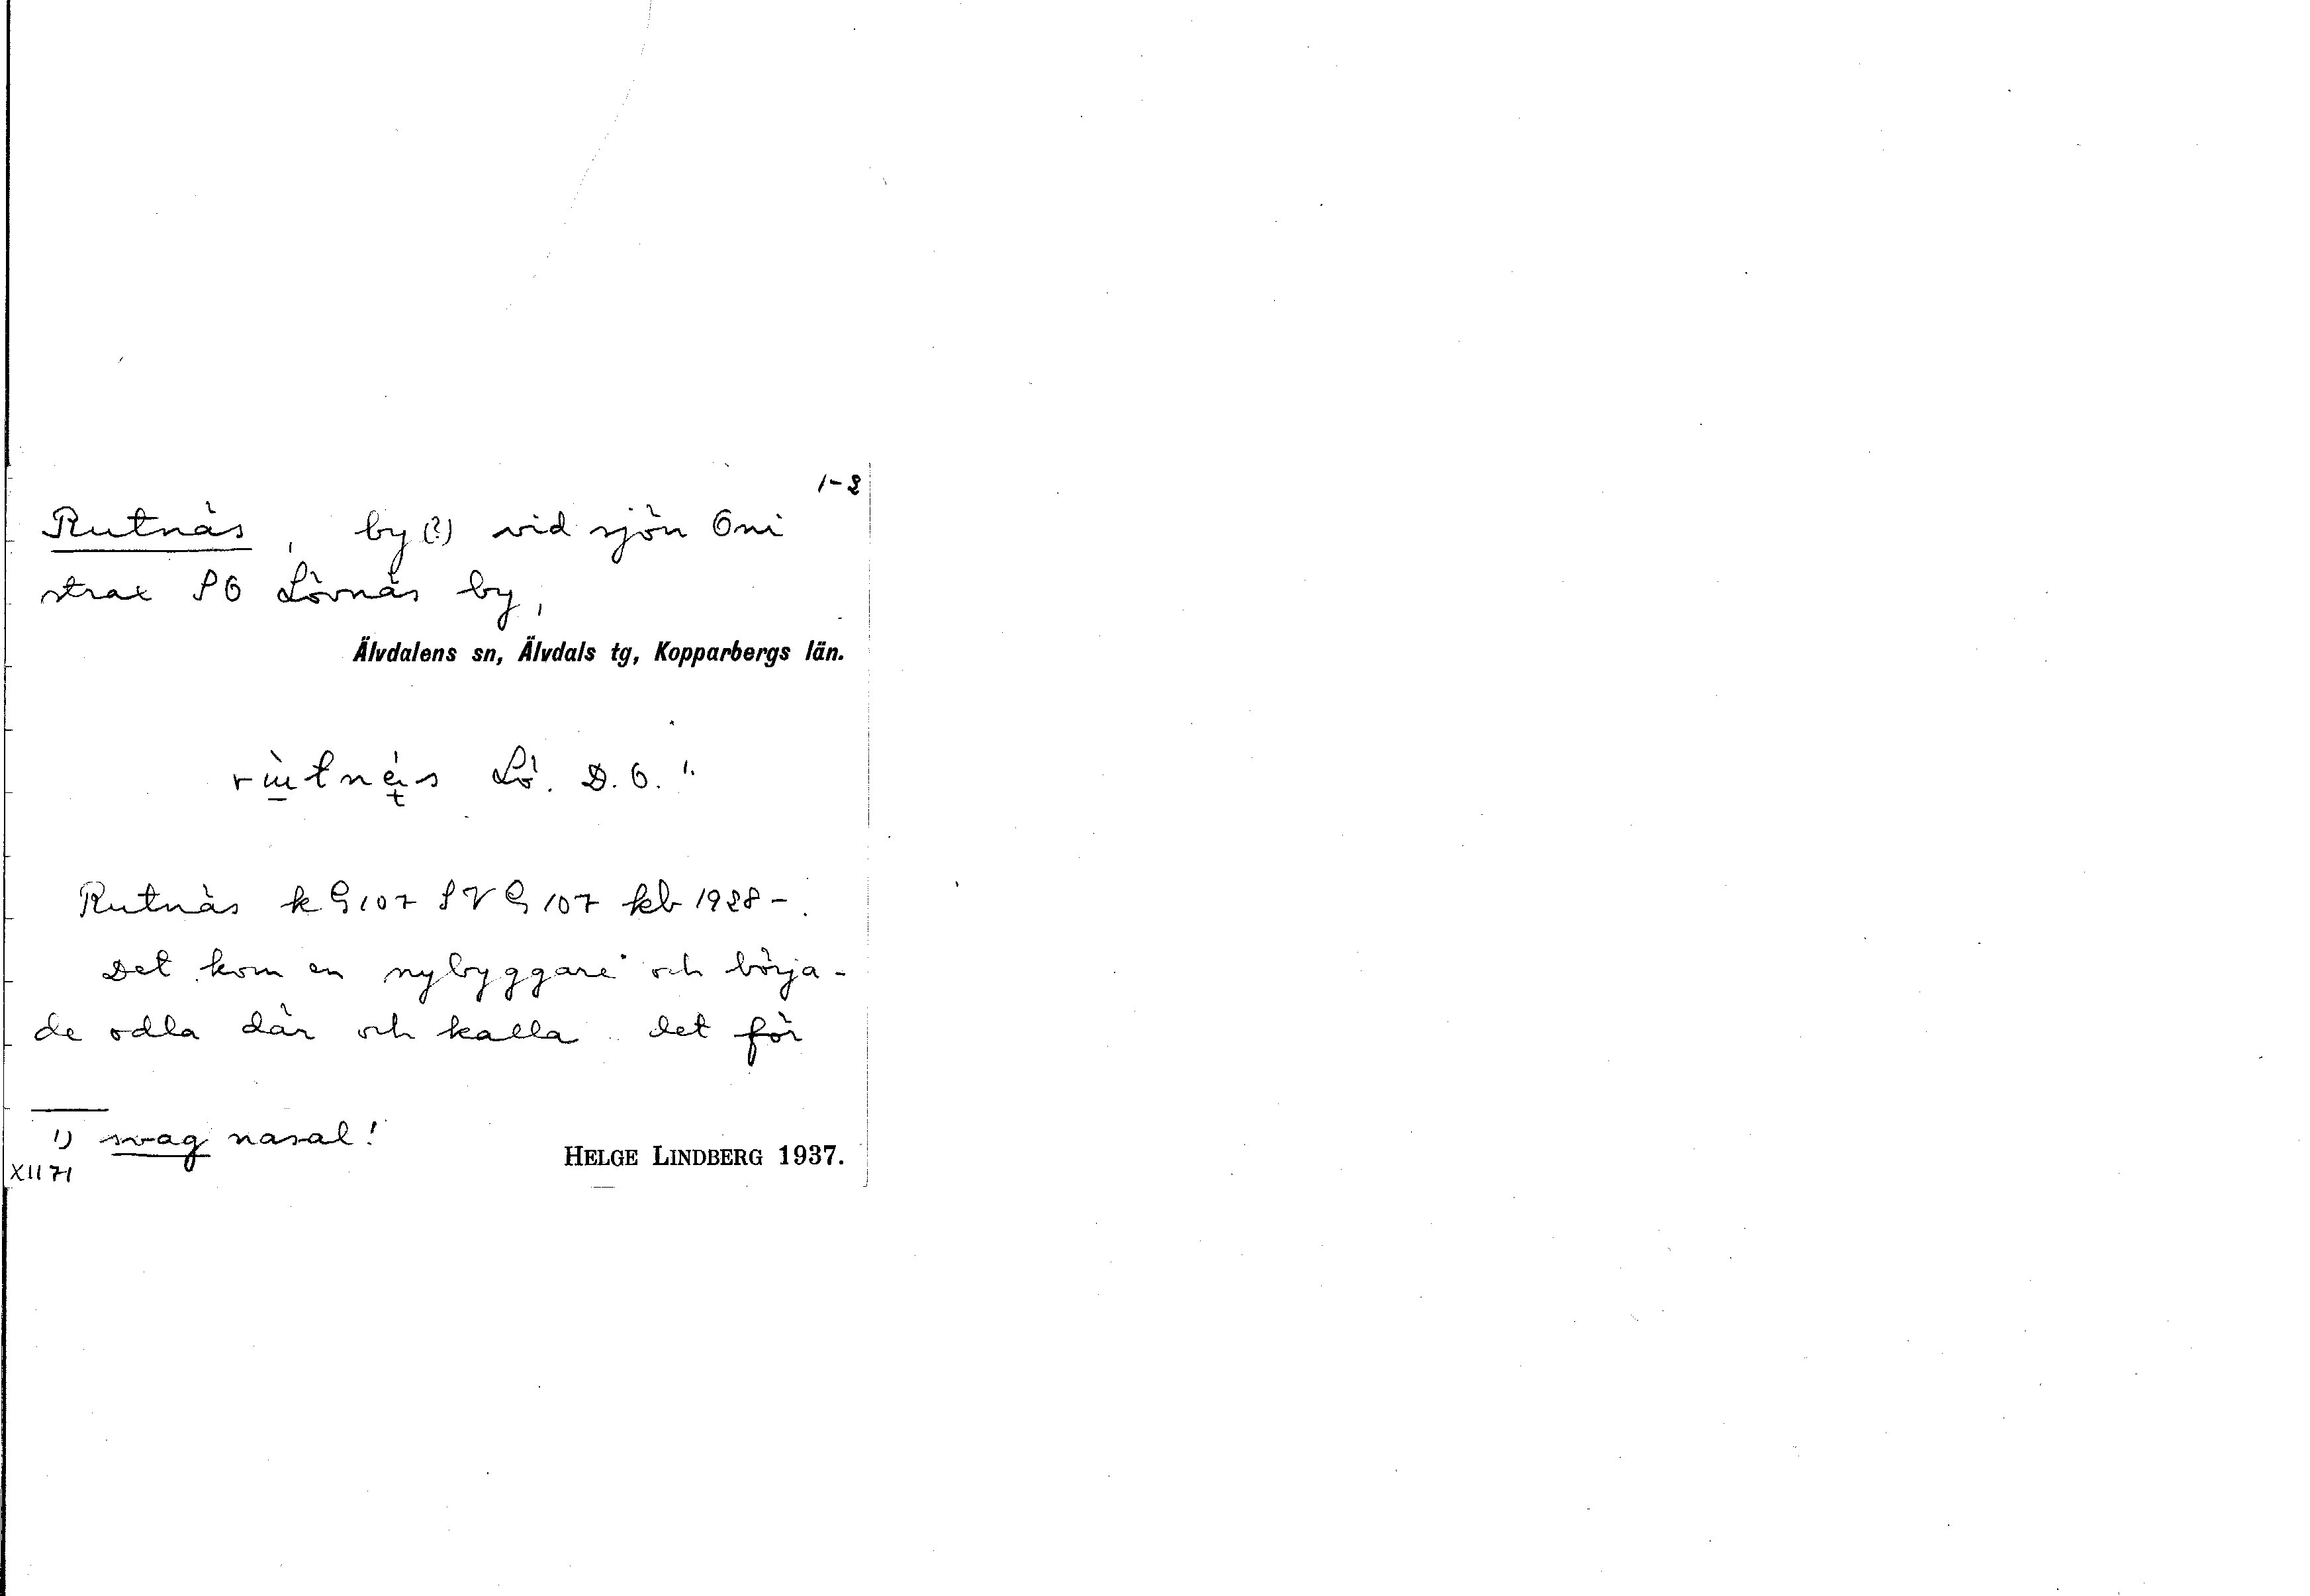 1-2
Rutnäs, by(?) vid sjön Öni
strax SÖ Lövnäs by,
Älvdalens sn, Älvdals tg, Kopparbergs län.
Lö. D.Ö. 1.
Rutnäs k G 107 SV G 107 kb 1928-.
Det kom en nybyggare och börja-
de odla där och kalla det för
1) svag nasal!
HELGE LINDBERG 1937.
XII 71